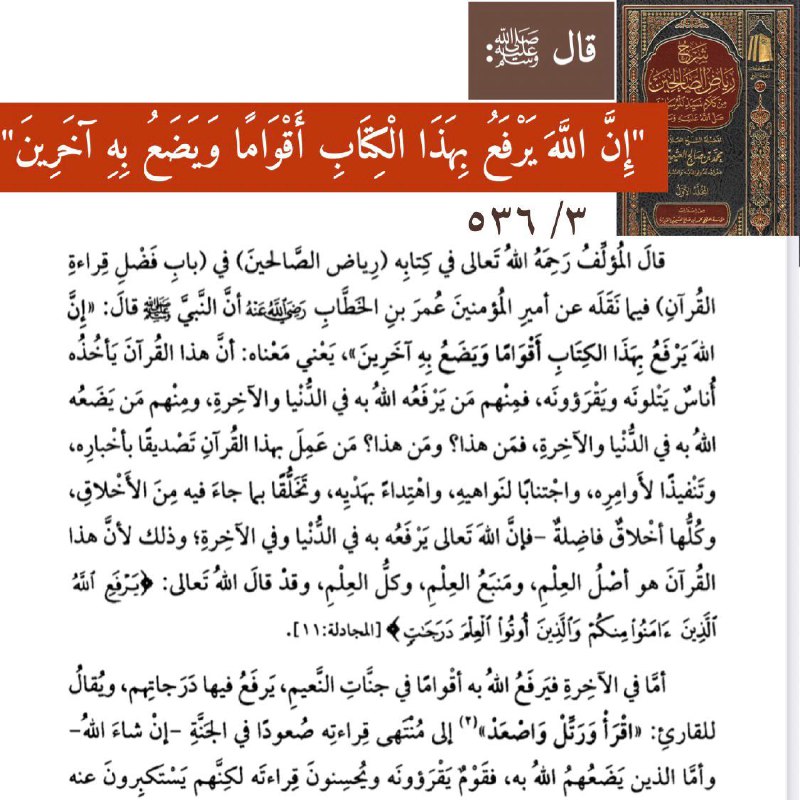 قال ﷺ:
"إِنَّ اللَّهَ يَرْفَعُ بِهَذَا الْكِتَابِ أَقْوَامًا وَيَضَعُ بِهِ آخَرِينَ"
٣/ ٥٣٦
شرح
رياض الصالحين
من كلام سيد المرسلين
المجلد الأول
قالَ المُؤلِّفُ رَحِمَهُ اللهُ تَعالى في كِتابِه (رِياض الصَّالحينَ) في (بابِ فَضْلِ قِراءةِ
القُرآنِ) فيما نَقَلَه عن أميرِ المُؤمنينَ عُمرَ بنِ الخَطَّابِ رَضِيَ اللَّهُ عَنْهُ أنَّ النَّبيَّ ﷺ قالَ: «إنَّ
اللهَ يَرْفَعُ بِهَذَا الكِتَابِ أَقْوَامًا وَيَضَعُ بِهِ آخَرِينَ»، يَعْني مَعْناه: أنَّ هذا القُرآنَ يَأخُذُه
أُناسٌ يَتْلونَه ويَقْرَؤونَه، فمِنْهم مَن يَرْفَعُه اللهُ به في الدُّنْيا والآخِرةِ، ومِنْهم مَن يَضَعُه
اللهُ به في الدُّنْيا والآخِرةِ، فمَن هذا؟ ومَن هذا؟ مَن عَمِلَ بهذا القُرآنِ تَصْديقًا بأخْبارِه،
وتَنْفيذًا لأَوامِرِه، واجْتنابًا لنَواهيهِ، واهْتِداءً بهَدْيِه، وتَخَلُّقًا بما جاءَ فيه مِنَ الأَخْلاقِ،
وكُلُّها أخْلاقٌ فاضِلةٌ -فإنَّ اللهَ تَعالى يَرْفَعُه به في الدُّنْيا وفي الآخِرةِ؛ وذلك لأنَّ هذا
القُرآنَ هو أصْلُ العِلْمِ، ومَنبَعُ العِلْمِ، وكلُّ العِلْمِ، وقدْ قالَ اللهُ تَعالى: ﴿يَرْفَعِ ٱللَّهُ
ٱلَّذِينَ ءَامَنُوا۟ مِنكُمْ وَٱلَّذِينَ أُوتُوا۟ ٱلْعِلْمَ دَرَجَٰتٍ﴾ [المجادلة:١١].
أمَّا في الآخِرةِ فيَرفَعُ اللهُ به أقْوامًا في جنَّاتِ النَّعيمِ، يَرفَعُ فيها دَرَجاتِهم، ويُقالُ
للقارِئِ: «اقْرَأْ وَرَتِّلْ وَاصْعَدْ»(٢) إلى مُنْتَهى قِراءتِه صُعودًا في الجَنَّةِ -إنْ شاءَ اللهُ-
وأمَّا الذين يَضَعُهمُ اللهُ به، فقَوْمٌ يَقْرَؤونَه ويُحسِنونَ قِراءتَه لكِنَّهم يَسْتكبِرونَ عنه